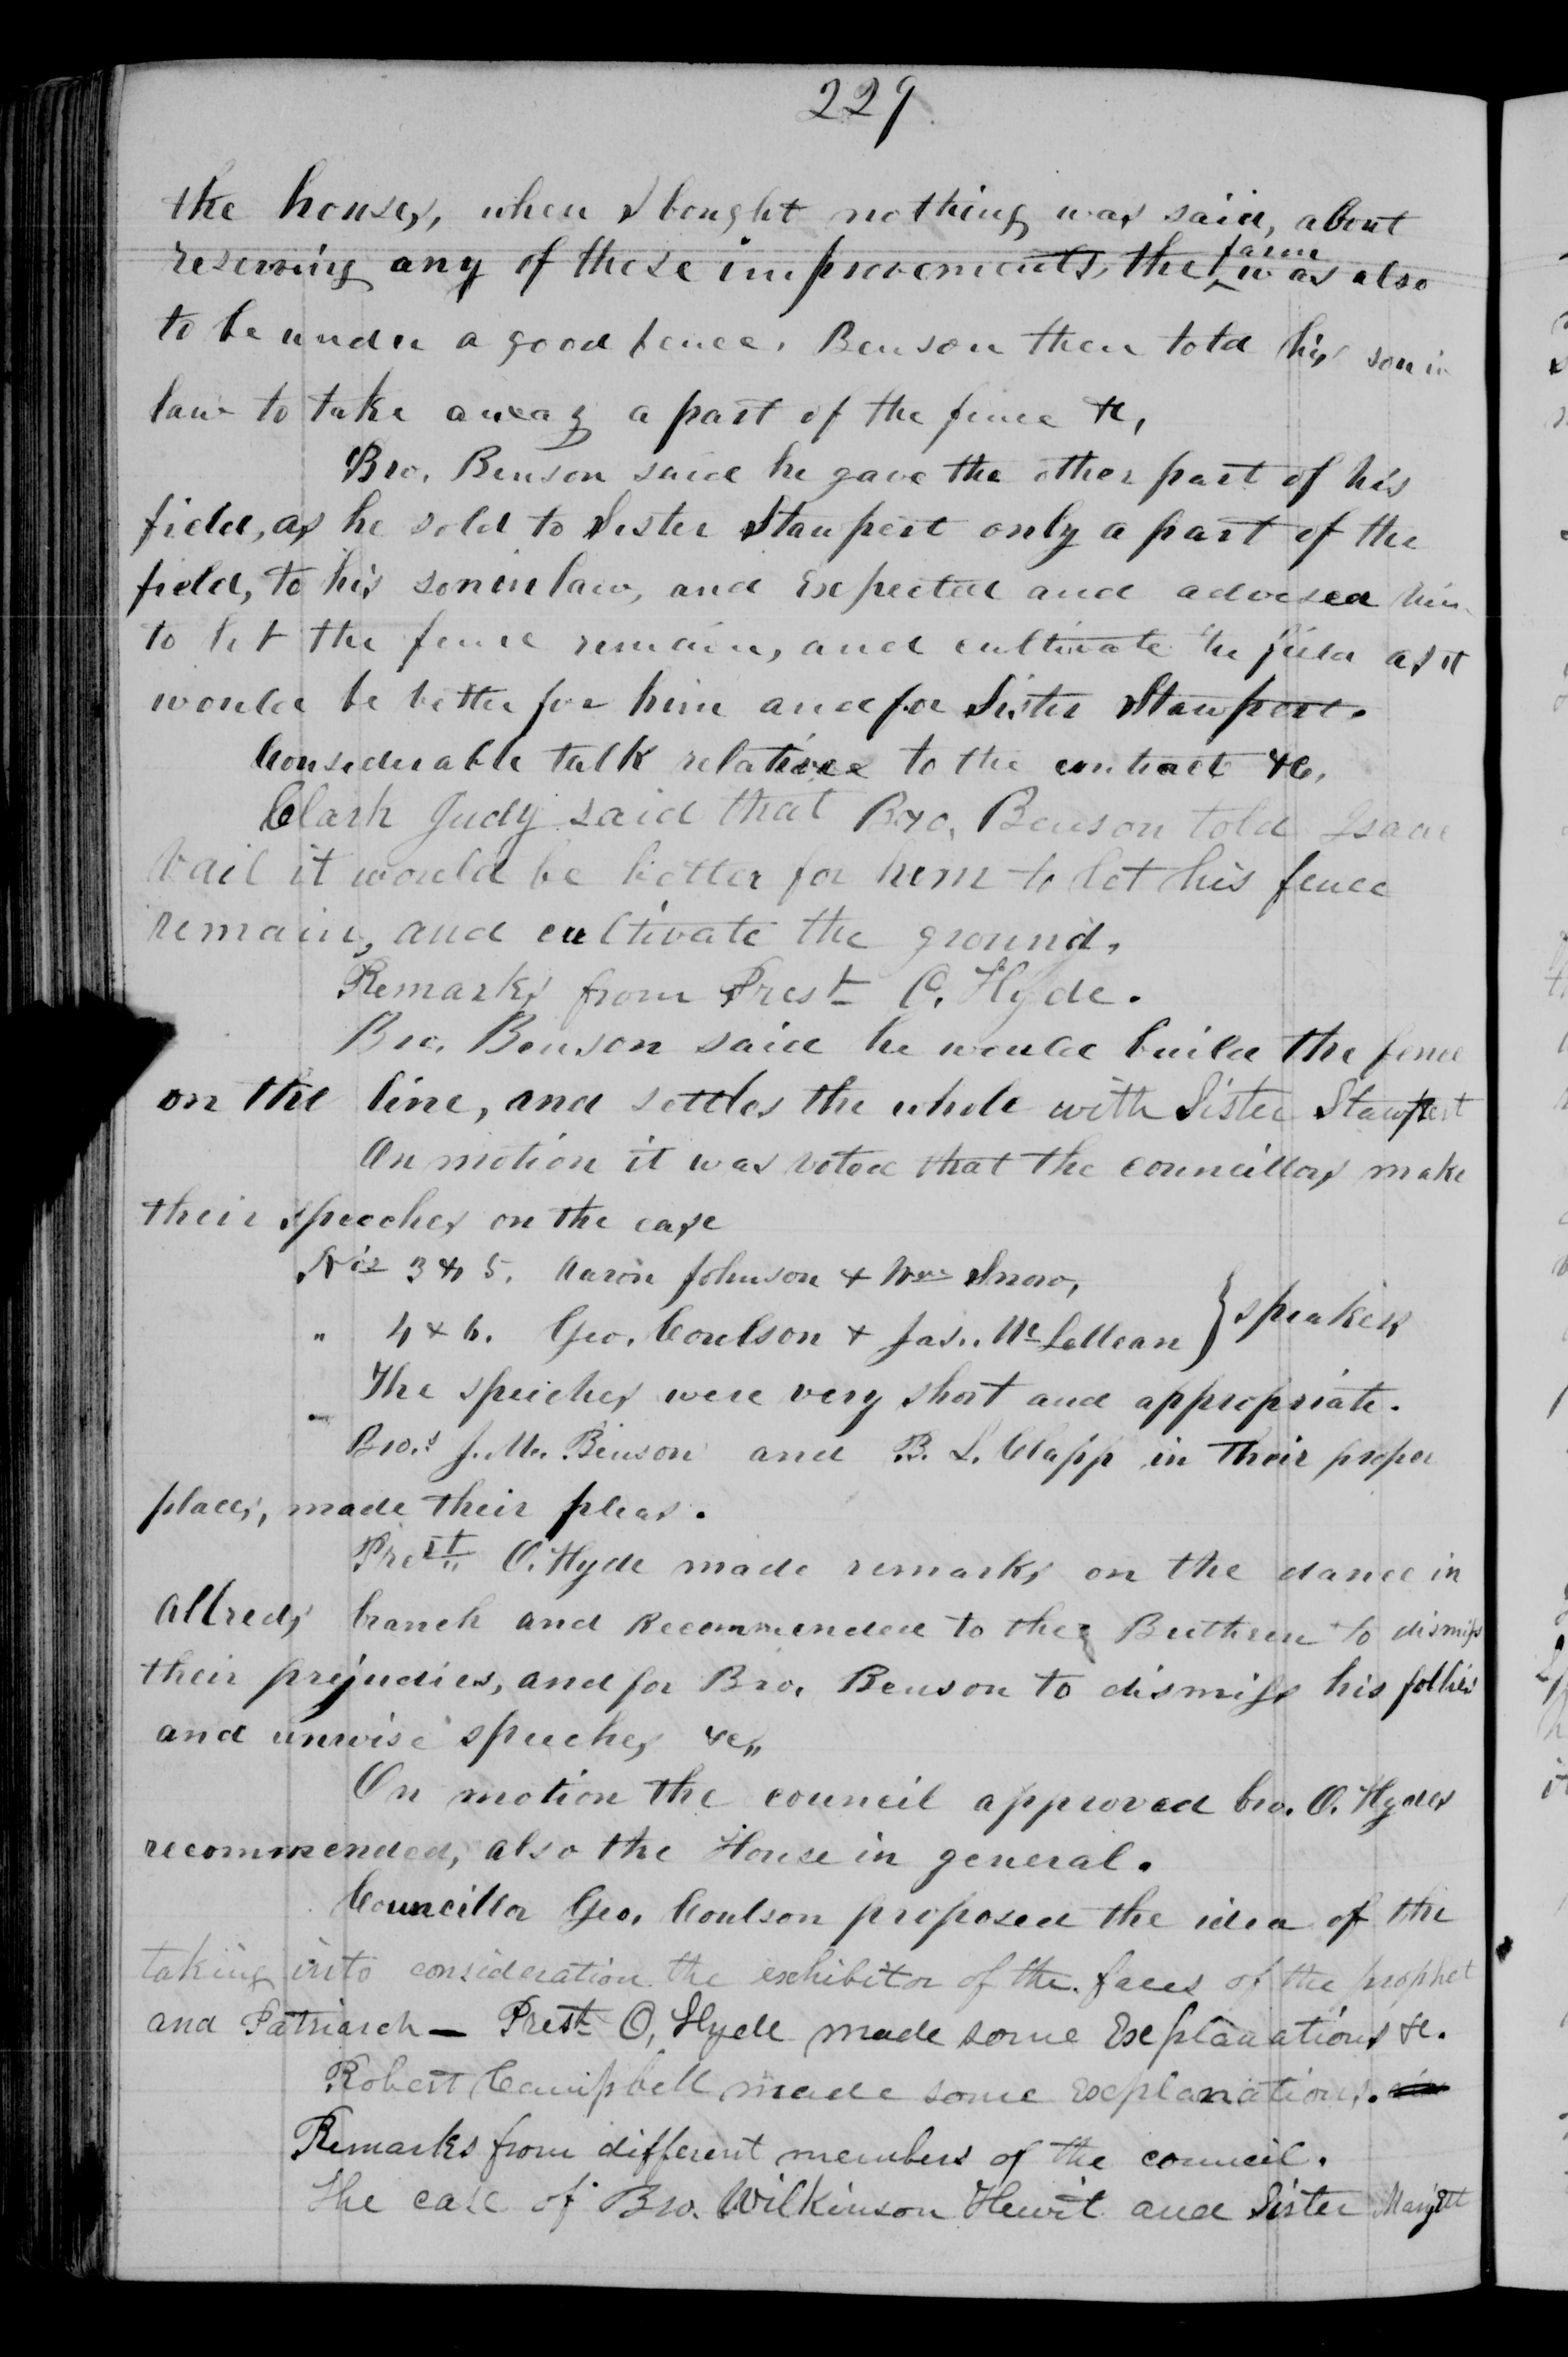 229
the houses, when I bought nothing was said, about
reserving any of these improvements, the ^farm was also
to be under a good fence. Benson then told his son in
law to take away a part of the fence &c,
Bro. Benson said he gave the other part of his
field, as he sold to Sister Stanpert only a part of the
field, to his soninlaw, and Expected and advised him
to let the fence remain, and cultivate the field as it
would be better for him and for Sister Stanpert.
Considerable talk relative to the contract &c,
Clark Judy said that Bro. Benson told Isaac
Vail it would be better for him to let his fence
remain, and cultivate the ground,
Remarks from Prest O. Hyde.
Bro. Benson said he would build the fence
on the line, and settles the whole with Sister Stanpert
On motion it was voted that the councillors make
their speeches on the case
Nos 3 & 5. Aaron Johnson & Wm Snow,
" 4 & 6. Geo. Coulson & Jas. Mc Lellean } speakers
The speeches were very short and appropriate.
Bro.s J. M. Benson and B. L. Clapp in their proper
places, made their pleas.
Prest. O. Hyde made remarks on the dance in
Allreds branch and Recommended to the Brethren to dismiss
their prejudies, and for Bro. Benson to dismiss his follies
and unwise speeches &c,,
On motion the council approved bro. O. Hydes
recommended, also the House in general.
Councillor Geo. Coulson proposed the idea of the
taking into consideration the exhibitor of the faces of the prophet
and Patriarch — Prest O, Hyde made some Explanations &c.
Robert Campbell made some Explanations.
Remarks from different members of the council.
The case of Bro. Wilkinson Hewit and Sister